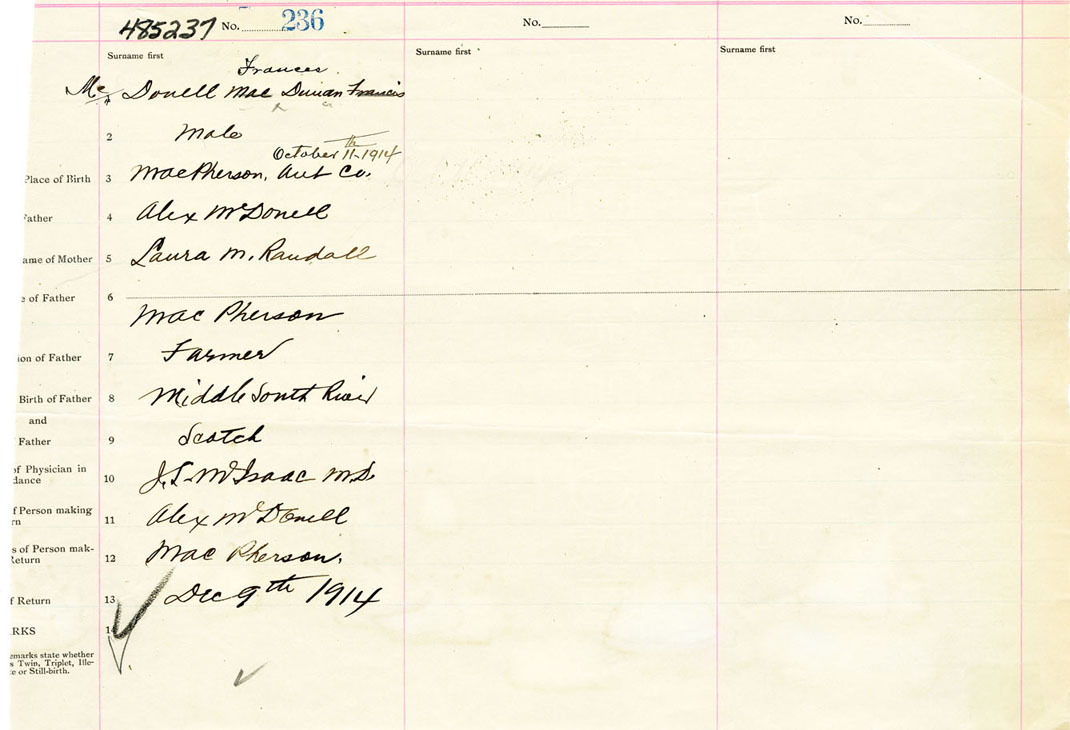 485237 No. 236
No.
No.
Surname first
Surname first
Surname first
Frances
Mc Donell Mac Duncan Francis
2 Male
October 11th 1914
Place of Birth 3 MacPherson, Ant Co.
Father 4 Alex McDonell
ame of Mother 5 Laura M. Randall
e of Father 6
Mac Pherson
ion of Father 7 Farmer
Birth of Father 8 Middle South River
and
Father 9 Scotch
of Physician in
dance 10 McIsaac M.D.
f Person making
rn 11 Alex McDonell
s of Person mak-
Return 12 Mac Pherson.
f Return 13 Dec 9th 1914
RKS 14
emarks state whether
s Twin, Triplet, Ille-
e or Still-birth.